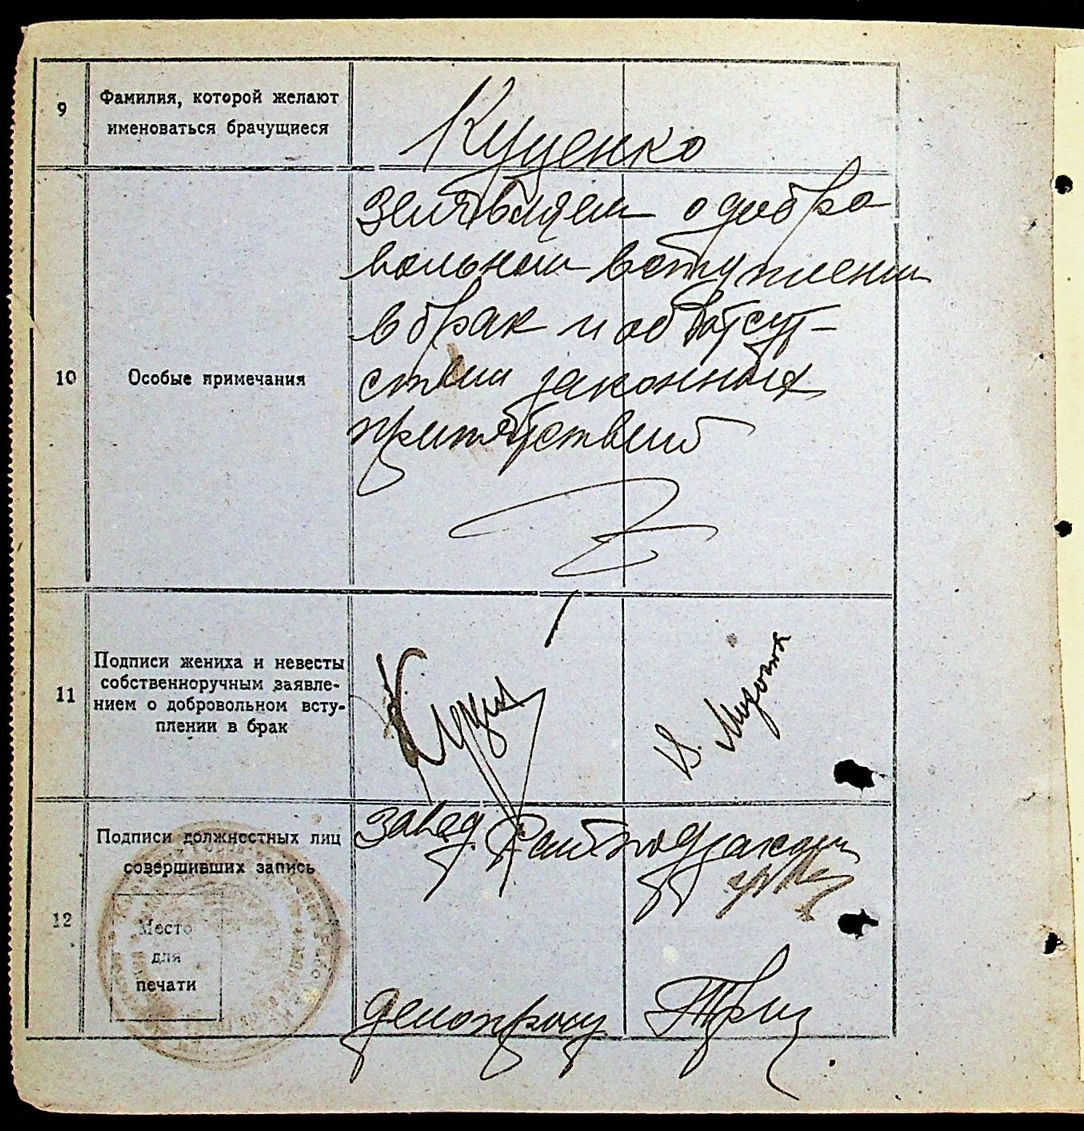 9
Фамилия, которой желают
именоваться брачущиеся
Куценко
10
Особые примечания
заявляем о добра
вольном вступлении
в брак и об отсут-
ствии законных
притятствий
11
Подписи жениха и невесты
собственноручным заявле-
нием о добровольном всту-
плении в брак
12
Подписи должностных лиц
совершивших запись
Место
для
печати
завед
делопроиз